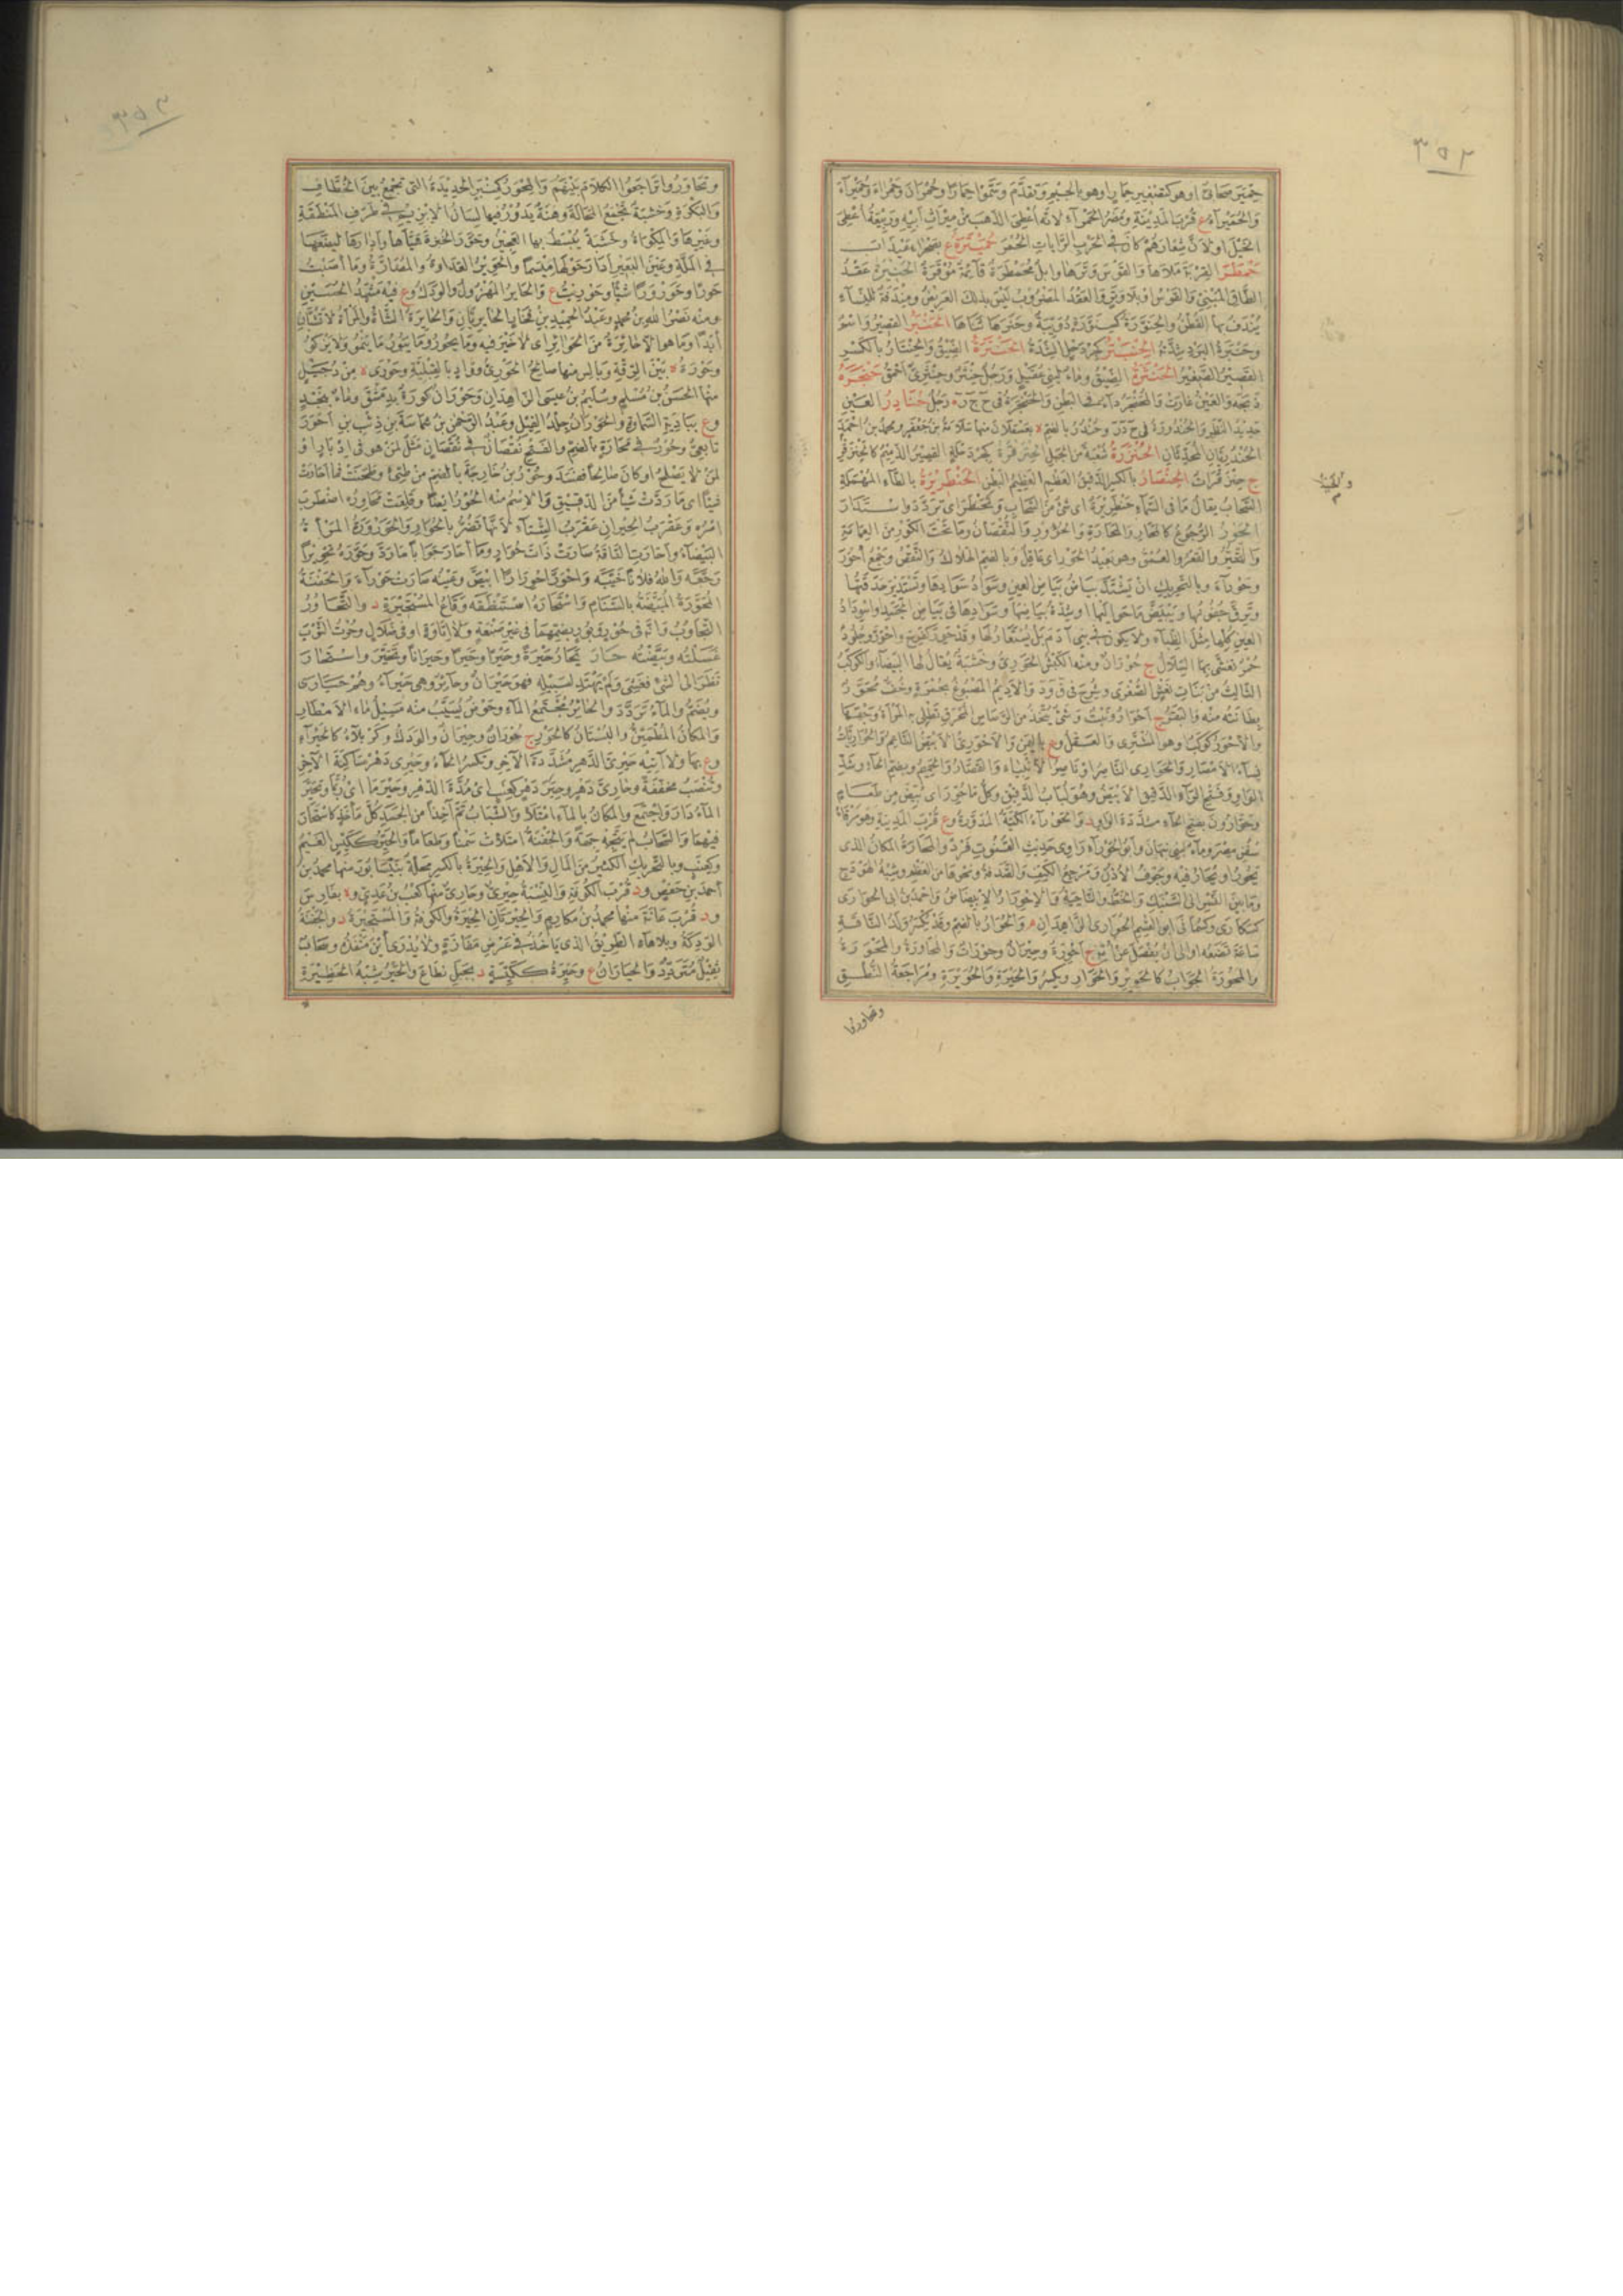 ٣٥٢
حمير صحابى او هو كتصغير حمار او هو بالجيم وتقدم وسموا حمارا وحمران وحمراء وحميراء
والحميراء ع قرب المدينة ومضر الحمراء لانه اعطى الذهب من ميراث ابيه وربيعة اعطى
الخيل او لان شعارهم كان فى الحرب الرايات الحمر
حمطر القربة ملأها والقوس وترها وابل محمطرة قائمة موقرة الحنيرة عقد
الطاق المبنى والقوس او بلا وتر والعقد المضروب ليس بذلك العريض ومندفة للنساء
يندف بها القطن والحنورة كسنورة دويبة وحنرها ثناها الحنبر القصير واسم
وحنبرة البرد شدته الحنبتر كجردحل الشدة الحنترة الضيق والحنتار بالكسر
القصير الصغير الحنثرة الضيق وماء لبنى عقيل ورجل حنثر وحنثرى احمق حنجره
ذبحه والعين غارت والمحنجر داء فى البطن والحنجرة فى ح ج ر رجل حنادر العين
حديد النظر والحندورة فى ح د ر وحندر بالضم ة بعسقلان منها سلامة بن جعفر ومحمد بن احمد
الحندريان المحدثان الحنزرة شعبة من الجبل الحنزقرة كجردحلة القصير الدميم كالحنزقر
ج حنزقرات الحنصار بالكسر الدقيق العظم العظيم البطن الحنطريرة بالطاء المهملة
السحاب يقال ما فى السماء حنطريرة اى شئ من السحاب وتحنطر اى تردد واستدار
الحور الرجوع كالمحار والمحارة والحؤور والنقصان وما تحت الكور من العمامة
والتحير والقعر والعمق وهو بعيد الحور اى عاقل وبالضم الهلاك والنقص وجمع احور
وحوراء وبالتحريك ان يشتد بياض بياض العين وسواد سوادها وتستدير حدقتها
وترق جفونها ويبيض ما حواليها او شدة بياضها وسوادها فى بياض الجسد او اسوداد
العين كلها مثل الظباء ولا يكون فى بنى آدم بل يستعار لها وقد حور كفرح واحور وجلود
حمر تغشى بها السلال ج حوران ومنه الكبش الحورى وخشبة يقال لها البيضاء والكوكب
الثالث من بنات نعش الصغرى وشرح فى ق و د والاديم المصبوغ بحمرة وخف محور
بطانته منه والبقر ج احوار ونبت وشئ يتخذ من الرصاص المحرق تطلى به المرأة وجهها
والاحور كوكب او هو المشترى والعقل وع باليمن والاحورى الابيض الناعم والحواريات
نساء الامصار والحوارى الناصر او ناصر الانبياء والقصار والحميم وبضم الحاء وشد
الواو وفتح الراء الدقيق الابيض وهو لباب الدقيق وكل ما حور اى بيض من طعام
وحوارون بفتح الحاء مشددة الواو د والحوراء الكية المدورة وع قرب المدينة وهو مرفأ
سفن مصر وماء لبنى نبهان وابو الحوراء راوى حديث القنوت فرد والمحارة المكان الذى
يحور او يحار فيه وجوف الاذن ومرجع الكتف والصدفة ونحوها من العظم وشبه الهودج
وما بين النسر الى السنبك والخط والناحية والاحورار الابيضاض واحمد بن ابى الحوارى
كسكارى وكسمانى ابو القسم الحوارى الزاهدان م والحوار بالضم وقد يكسر ولد الناقة
ساعة تضعه او الى ان يفصل عن امه ج احورة وحيران وحوران والمحاورة والمحورة
والمحورة الجواب كالحوير والحوار ويكسر والحيرة والحويرة ومراجعة النطق
وتحاوروا
٣٥٣
وتحاوروا تراجعوا الكلام بينهم والمحور كمنبر الحديدة التى تجمع بين الخطاف
والبكرة وخشبة تجمع المحالة وهنة يدور فيها لسان الابزيم فى طرف المنطقة
وغيرها والمكواة وخشبة يبسط بها العجين وحور الخبزة هيأها وادارها ليضعها
فى الملة وعين البعير ادار حولها ميسما والحوير العداوة والمضارة وما اصبت
حورا وحورورا شيئا وحوريت ع والحاير المهزول والودك وع فيه مشهد الحسين
ومنه نصر الله بن محمد وعبد الحميد بن فخار الحايريان والحايرة الشاة والمرأة لا تشبان
ابدا وما هو الا حائرة من الحوائر اى لا خير فيه وما يحور وما يبور ما ينمو وما يزكو
وحورة ة بين الرقة وبالس منها صالح الحورى وواد بالقبلية وحورى ة من دجيل
منها الحسن بن مسلم وسليم بن عيسى الزاهدان وحوران كورة بدمشق وماء بنجد
وع ببادية السماوة والحوران جلد الفيل وعبد الرحمن بن شماسة بن ذئب بن احور
تابعى وحور فى محارة بالضم والفتح نقصان فى نقصان مثل لمن هو فى ادبار او
لمن لا يصلح او كان صالحا ففسد وحور بن خارجة بالضم من طيئ وطحنت فما احارت
شيئا اى ما ردت شيئا من الدقيق والاسم منه الحور ايضا وقلقت محاوره اضطرب
امره وعقرب الحيران عقرب الشتاء لانها تضر بالحوار والحورورة المرأة
البيضاء واحارت الناقة صارت ذات حوار وما احار جوابا ما رد وحوره تحويرا
رجعه والله فلانا خيبه واحور احورارا ابيض وعينه صارت حوراء والجفنة
المحورة المبيضة بالسنام واستحاره استنطقه وقاع المستحيرة د والتحاور
التجاوب وانه فى حور وبور بضمهما فى غير صنعة ولا اتاوة او فى ضلال وحرت الثوب
غسلته وبيضته حار يحار حيرة وحيرا وحيرا وحيرانا وتحير واستحار
نظر الى الشئ فعشى ولم يهتد لسبيله فهو حيران وحائر وهى حيراء وهم حيارى
ويضم والماء تردد والحائر مجتمع الماء وحوض يسيب منه مسيل ماء الامطار
والمكان المطمئن والبستان كالحير ج حوران وحيران والودك وكربلاء كالحيراء
وع بها ولا آتيه حيرى الدهر مشددة الآخر وتكسر الحاء وحيرى دهر ساكنة الآخر
وتنصب مخففة وحارى دهر وحير دهر كعنب اى مدة الدهر وحير ما اى ربما وتحير
الماء دار واجتمع والمكان بالماء امتلأ والشباب تم آخذا من الجسد كل مأخذ كاستحار
فيهما والسحاب لم يتجه جهة والجفنة امتلأت دسما وطعاما والحير ككيس الغيم
وكعنب وبالتحريك الكثير من المال والاهل والحيرة بالكسر محلة بنيسابور منها محمد بن
احمد بن حفص ود قرب الكوفة والنسبة حيرى وحارى منها كعب بن عدى وة بفارس
ود قرب عانة منها محمد بن مكارم والحيرتان الحيرة والكوفة والمستحيرة د والجفنة
الودكة وبلا هاء الطريق الذى ياخذ فى عرض مفازة ولا يدرى اين منفذه وسحاب
ثقيل متردد والحياران ع وحيرة ككيسة د بجبل نطاع والحير شبه الحظيرة